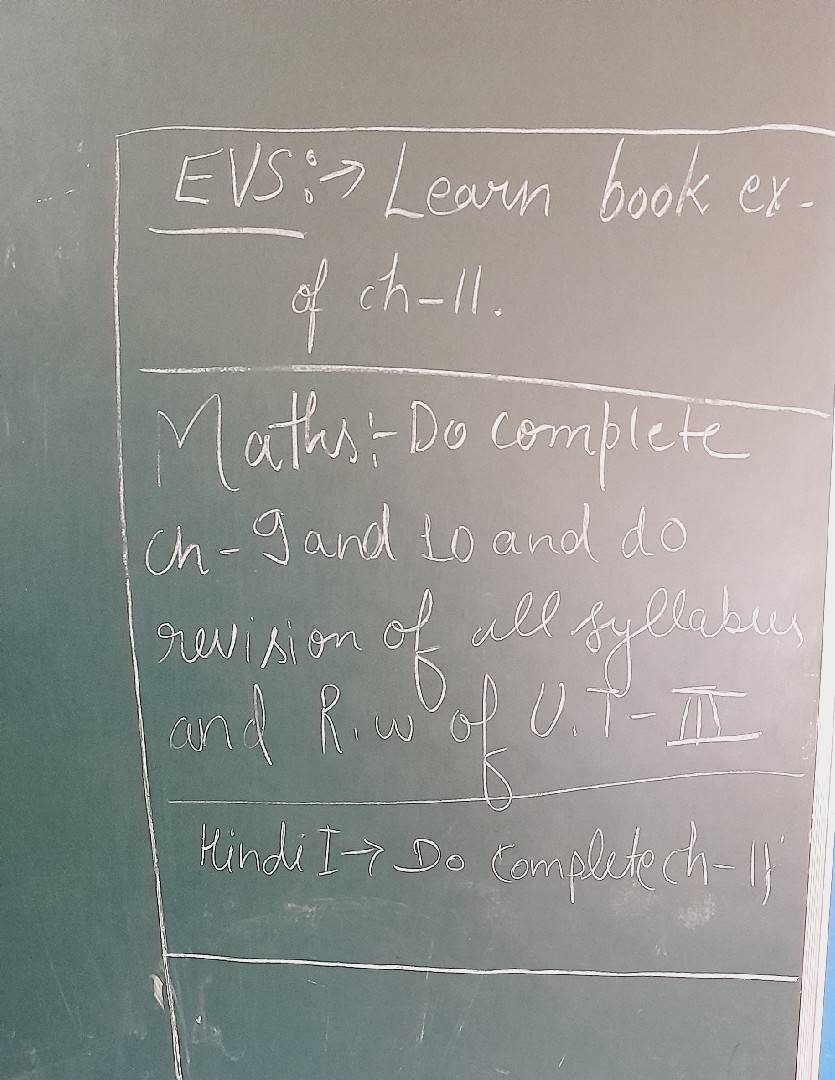 EVS:→ Learn book ex-
of ch-11.
Maths:- Do complete
ch-9 and 10 and do
revision of all syllabus
and R.w of U.T-III
Hindi I→ Do complete ch-11